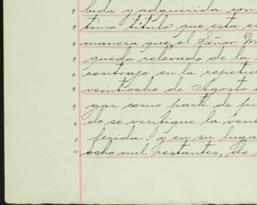 bida y adquirida son
timo titulo que esta es
manera que, el Señor M
queda relevado de la
contrajo, en la repetid
veintiocho de Agosto
gar como parte de pre
do se verifique la ven
ferida y en su luga
ocho mil restantes, de